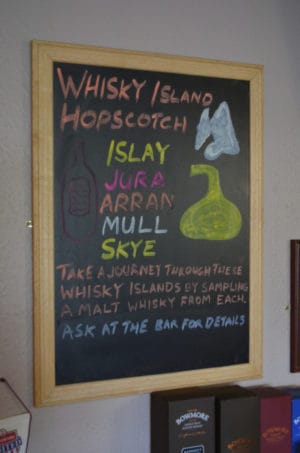 WHISKY ISLAND
HOPSCOTCH
ISLAY
JURA
ARRAN
MULL
SKYE
TAKE A JOURNEY THROUGH THESE
WHISKY ISLANDS BY SAMPLING
A MALT WHISKY FROM EACH.
ASK AT THE BAR FOR DETAILS
BOWMORE